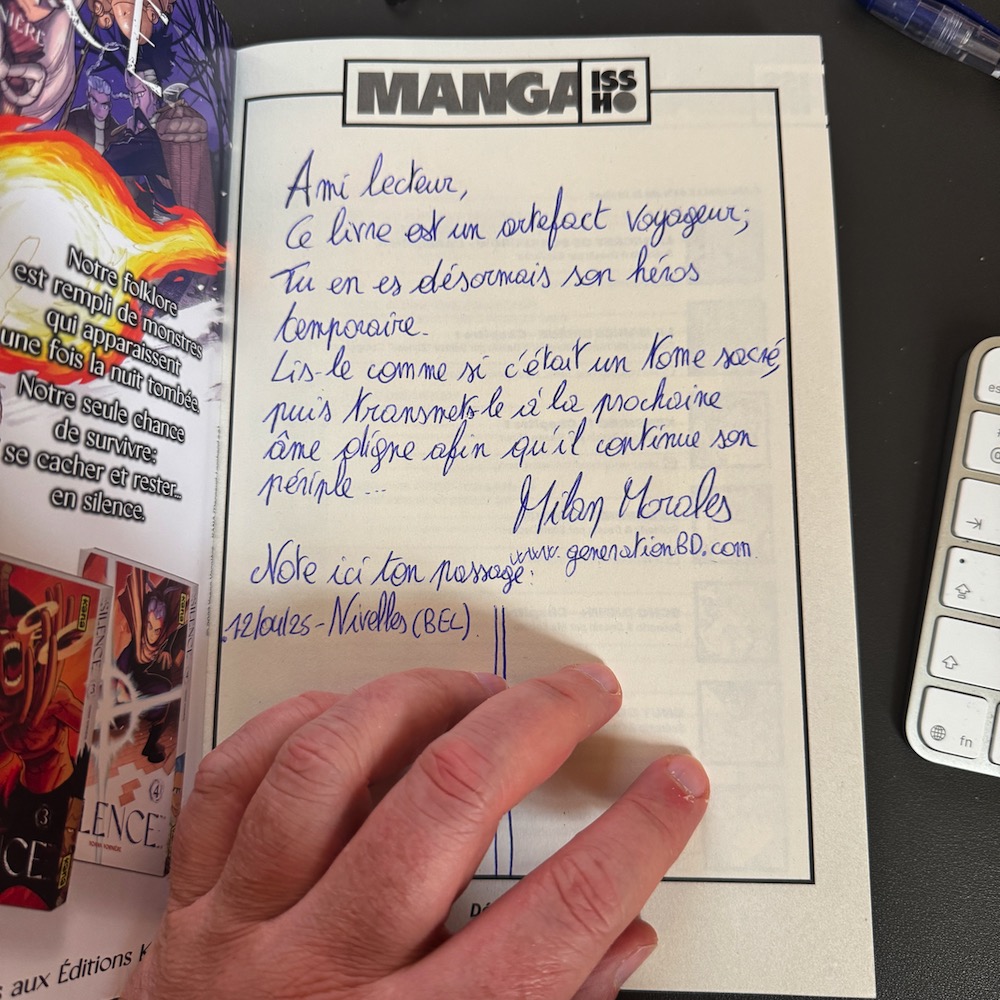 IÈRE
Notre folklore
est rempli de monstres
qui apparaissent
une fois la nuit tombée.
Notre seule chance
de survivre:
se cacher et rester...
en silence.
kana
SILENCE
3
kana
SILENCE
4
LENCE
3
CE
kana
aux Éditions K
MANGA
ISS
HO
Ami lecteur,
Ce livre est un artefact voyageur;
Tu en es désormais son héros
temporaire.
Lis-le comme si c'était un tome sacré,
puis transmets-le à la prochaine
âme digne afin qu'il continue son
périple...
Milan Morales
www.generationBD.com
Note ici ton passage:
12/04/25 - Nivelles (BEL).
Dé
esc
#
@
fn